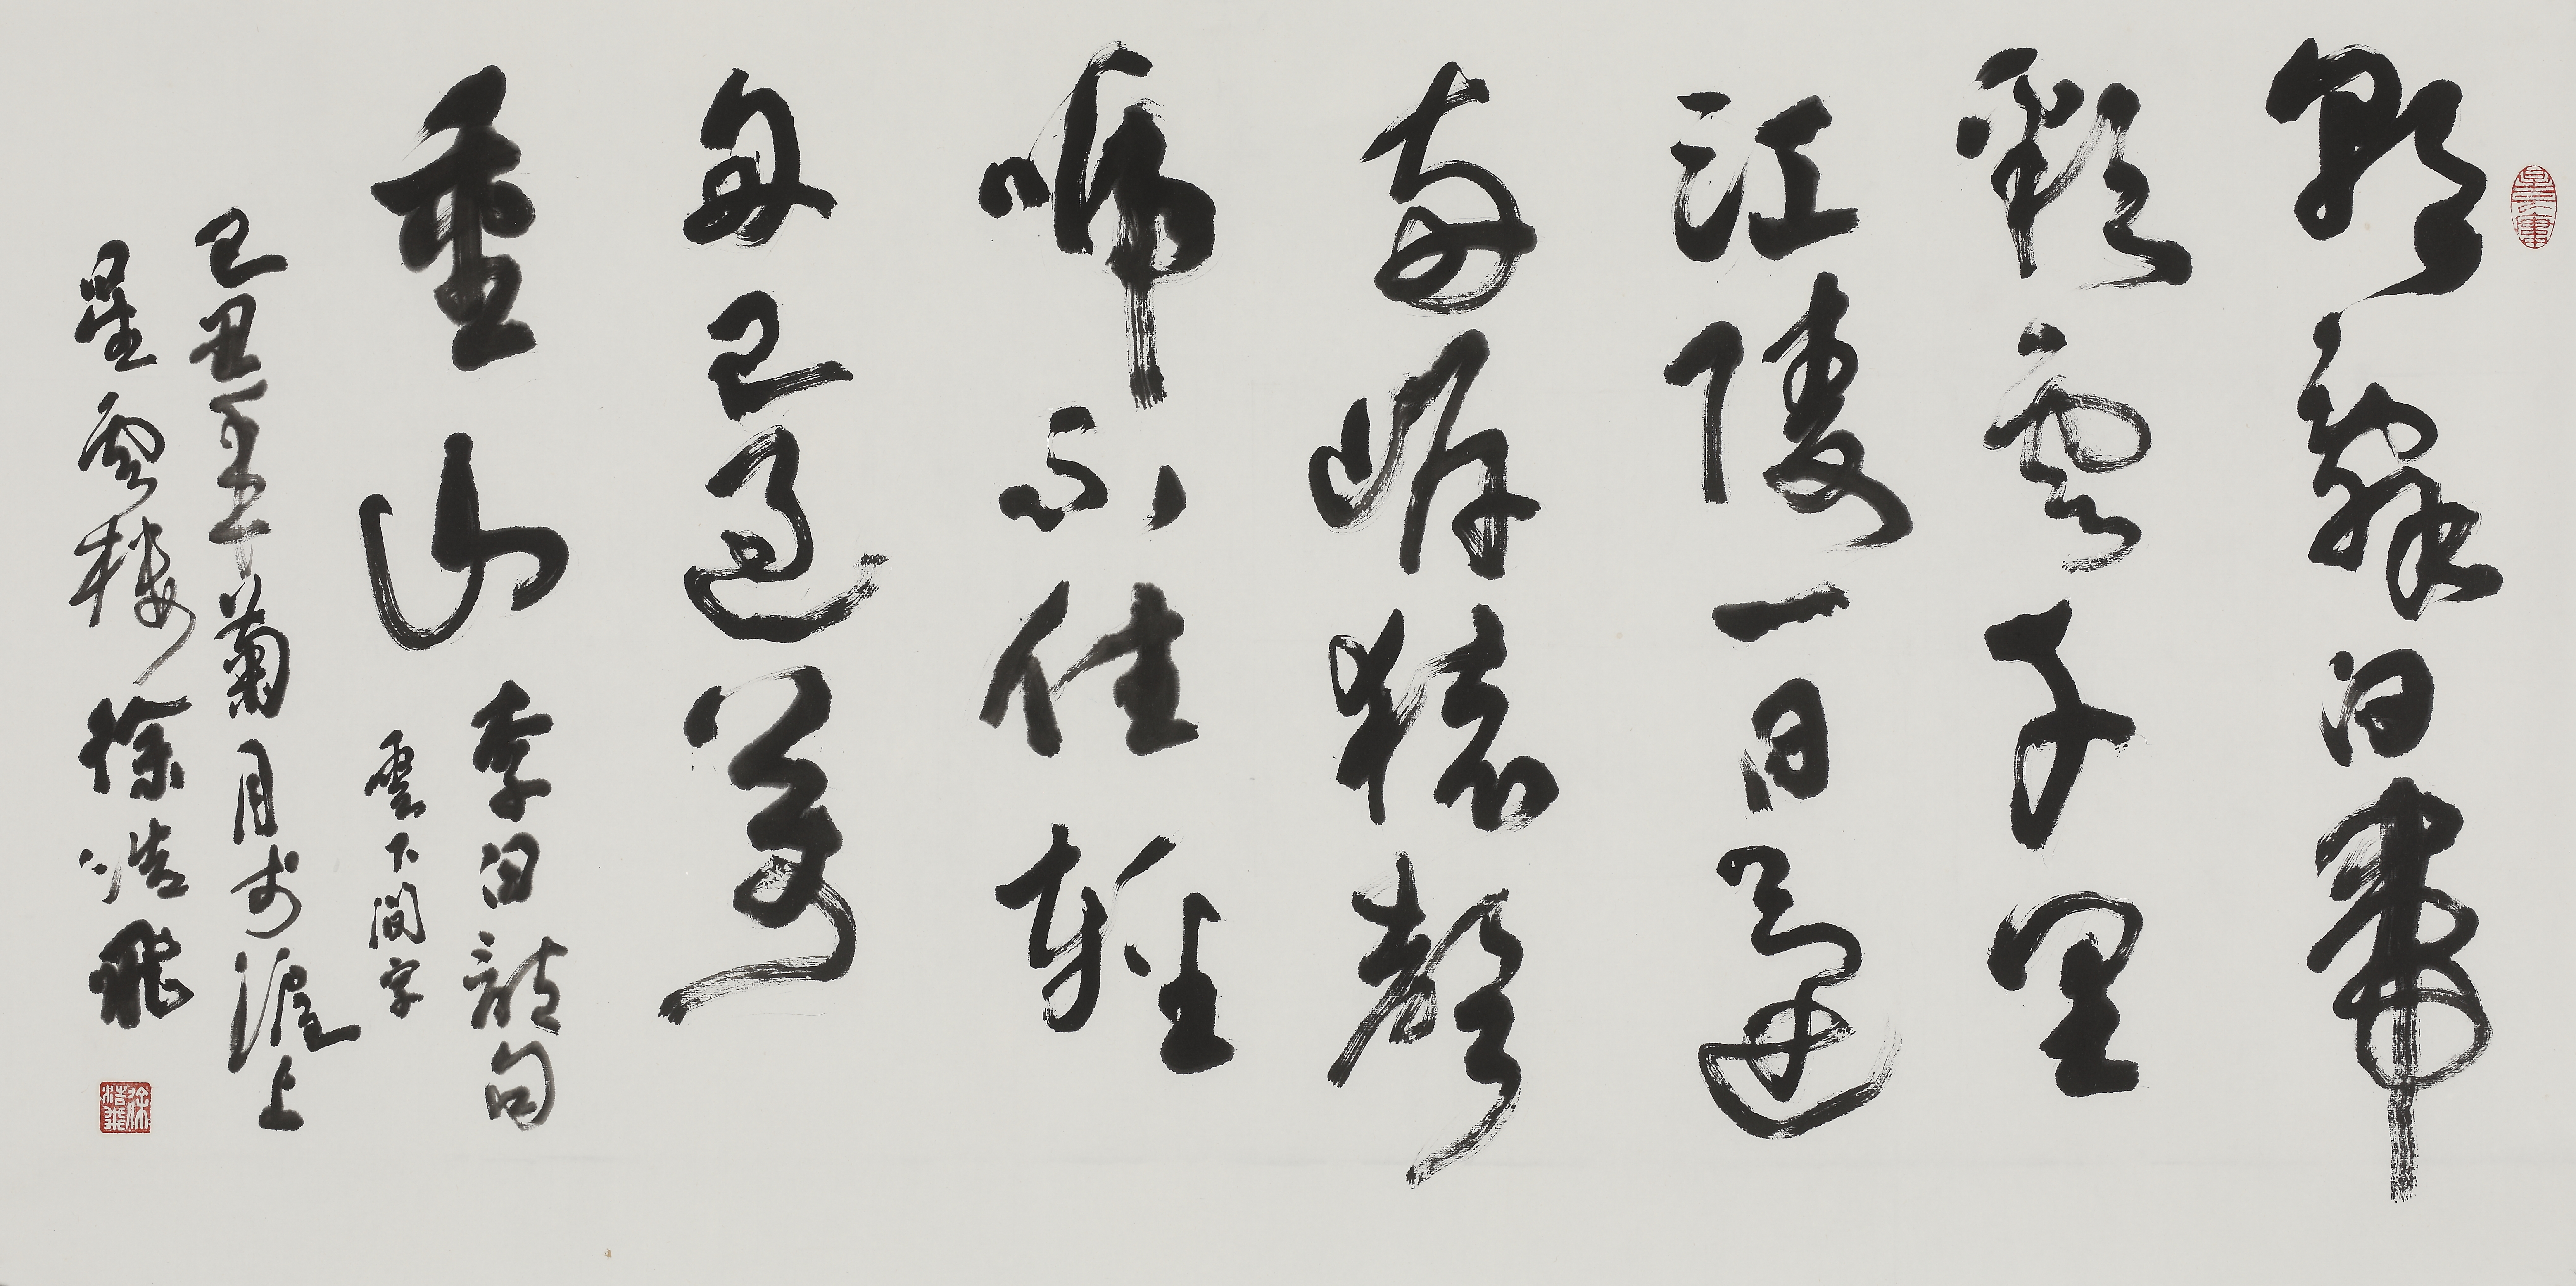 朝辭白帝
彩雲千里
江陵一日還
兩岸猿聲
啼不住輕
舟已過萬
重山
李白詩句
雲下間字
己丑年菊月於滬上
星雲樓徐浩飛
徐浩飛